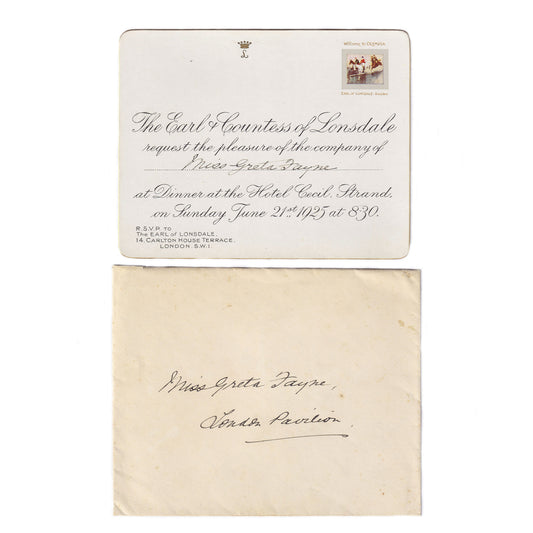 L
Welcome to OLYMPIA
EARL OF LONSDALE
The Earl & Countess of Lonsdale
request the pleasure of the company of
Miss Greta Fayne
at Dinner at the Hotel Cecil, Strand,
on Sunday June 21st 1925 at 8.30.
R.S.V.P. TO
The EARL of LONSDALE,
14, CARLTON HOUSE TERRACE,
LONDON. S.W.1
Miss Greta Fayne,
London Pavilion.